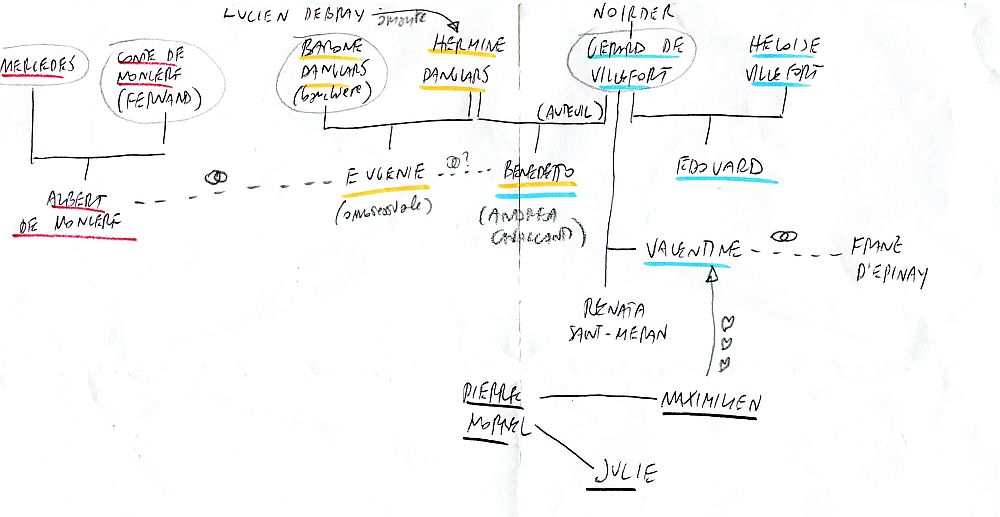 LUCIEN DEBRAY
amante
NOIRDER
MERCEDES
CONTE DE
MONCERF
(FERNAND)
BARONE
DANGLARS
(banchiere)
HERMINE
DANGLARS
GERARD DE
VILLEFORT
HELOISE
VILLEFORT
(AUTEUIL)
ALBERT
DE MONCERF
EUGENIE
?
BENEDETTO
(ANDREA
CAVALCANTI)
EDOUARD
VALENTINE
FRANZ
D'EPINAY
RENATA
SAINT-MERAN
PIERRE
MORREL
MAXIMILIEN
JULIE